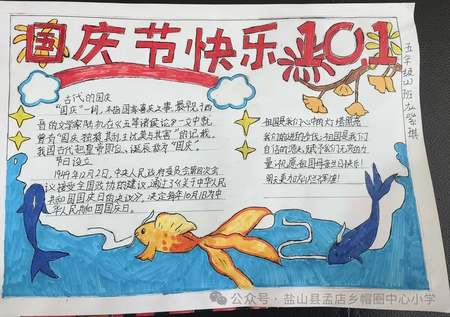 国庆节快乐 10.1
古代的国庆
"国庆"一词,本指国家喜庆之事,最早见于西
晋的文学家陆机在《五等诸侯论》一文中就
曾有"国庆独飨其利,主忧莫与其害"的记载,
我国古代把皇帝即位、诞辰称为"国庆"。
节日设立
1949年12月2日,中央人民政府委员会第四次会
议接受全国政协的建议,通过了《关于中华人民
共和国国庆日的决议》,决定每年10月1日为中
华人民共和国国庆日。
祖国是我们心中的灯塔照亮
我们的前进的步伐,祖国是我们
自信的源泉,赋予我们无穷的力
量,祝愿祖国母亲生日快乐!
明天更加灿烂辉煌!
五年级
班
公众号·盐山县孟店乡帽圈中心小学